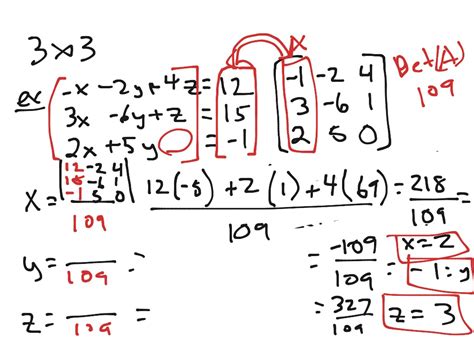 3x3
ex -x -2y+4z = 12
3x -6y+z = 15
2x+5y = -1
x
-1 -2 4
3 -6 1
2 5 0
Det(A)
109
x = 12 -2 4
15 -6 1
-1 5 0
109
12(-5)+2(1)+4(69)
109
= 218
109 = x=2
y = 109 = -109
109 = -1=y
z = 109 = 327
109 z=3